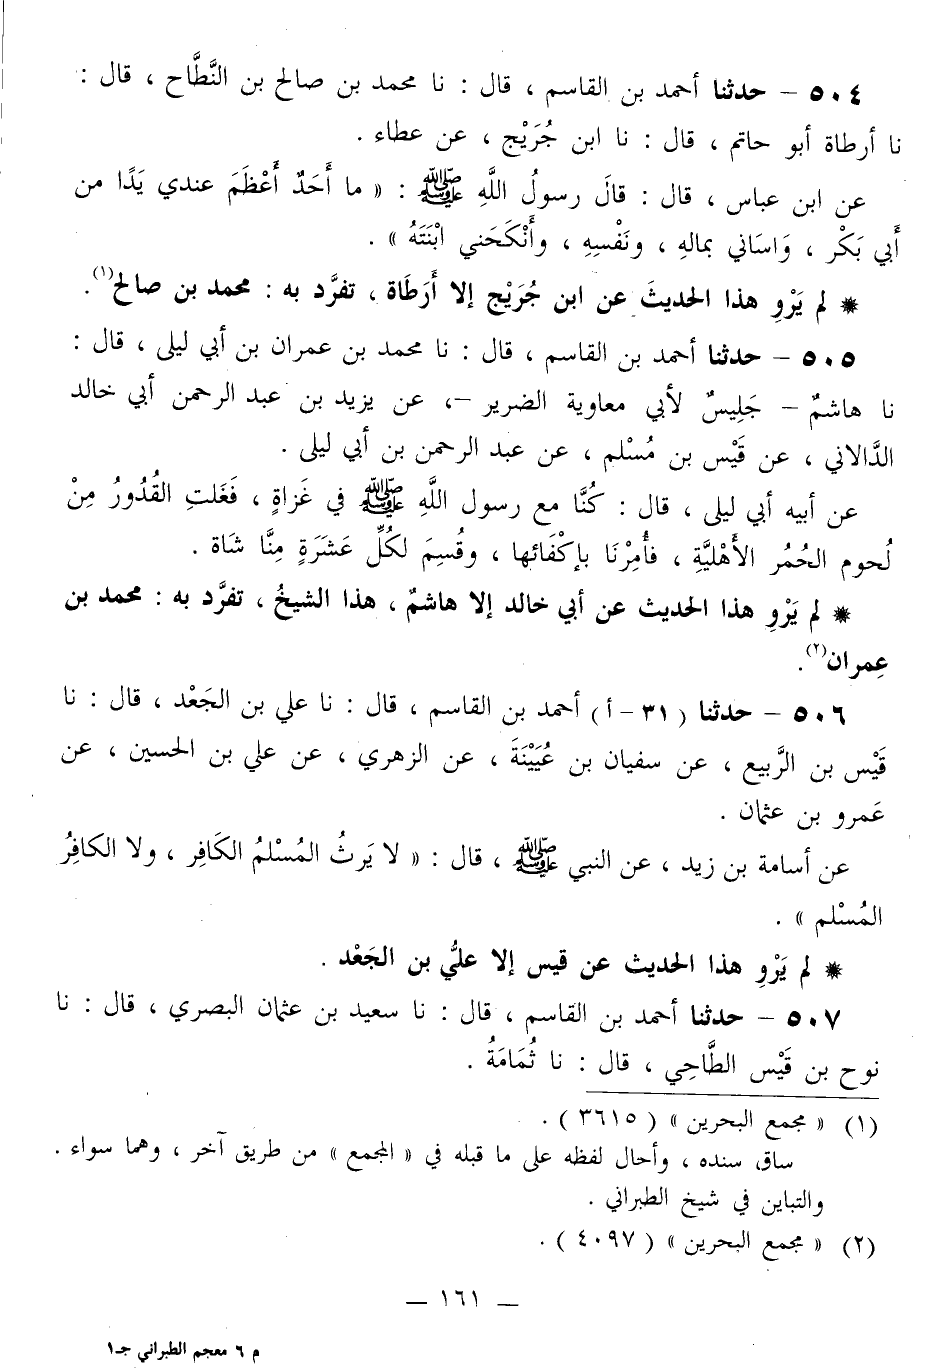 ٥٠٤ – حدثنا أحمد بن القاسم ، قال : نا محمد بن صالح بن النَّطَّاح ، قال :
نا أرطاة أبو حاتم ، قال : نا ابن جُرَيْج ، عن عطاء .
عن ابن عباس ، قال : قالَ رسولُ اللَّهِ ﷺ : « ما أَحَدٌ أَعْظَمَ عندي يَدًا من
أَبي بَكْر ، وَاسَاني بمالهِ ، ونَفْسِهِ ، وأَنْكَحَني ابْنَتَهُ » .
* لم يَرْوِ هذا الحديثَ عن ابن جُرَيْج إلا أَرَطَاة ، تفرَّد به : محمد بن صالح(١).
٥٠٥ – حدثنا أحمد بن القاسم ، قال : نا محمد بن عمران بن أبي ليلى ، قال :
نا هاشمٌ – جَلِيسٌ لأبي معاوية الضرير –، عن يزيد بن عبد الرحمن أبي خالد
الدَّالاني ، عن قَيْس بن مُسْلم ، عن عبد الرحمن بن أبي ليلى .
عن أبيه أبي ليلى ، قال : كُنَّا مع رسول اللَّهِ ﷺ في غَزاةٍ ، فَغَلتِ القُدُورُ مِنْ
لُحوم الحُمُر الأَهْليَّةِ ، فأُمِرْنَا بإكْفَائها ، وقُسِمَ لكُلِّ عَشَرَةٍ مِنَّا شَاة .
* لم يَرْوِ هذا الحديث عن أبي خالد إلا هاشمٌ ، هذا الشيخُ ، تفرَّد به : محمد بن
عِمران(٢).
٥٠٦ – حدثنا (٣١ – أ) أحمد بن القاسم ، قال : نا علي بن الجَعْد ، قال : نا
قَيْس بن الرَّبيع ، عن سفيان بن عُيَيْنَةَ ، عن الزهري ، عن علي بن الحسين ، عن
عَمرو بن عثمان .
عن أسامة بن زيد ، عن النبي ﷺ ، قال : « لا يَرثُ المُسْلمُ الكَافِر ، ولا الكافِرُ
المُسْلم » .
* لم يَرْوِ هذا الحديث عن قيس إلا عليُّ بن الجَعْد .
٥٠٧ – حدثنا أحمد بن القاسم ، قال : نا سعيد بن عثمان البصري ، قال : نا
نوح بن قَيْس الطَّاحِي ، قال : نا ثُمَامَةُ .
(١) « مجمع البحرين » (٣٦١٥) .
ساق سنده ، وأحال لفظه على ما قبله في « المجمع » من طريق آخر ، وهما سواء .
والتباين في شيخ الطبراني .
(٢) « مجمع البحرين » (٤٠٩٧) .
– ١٦١ –
م ٦ معجم الطبراني جـ١